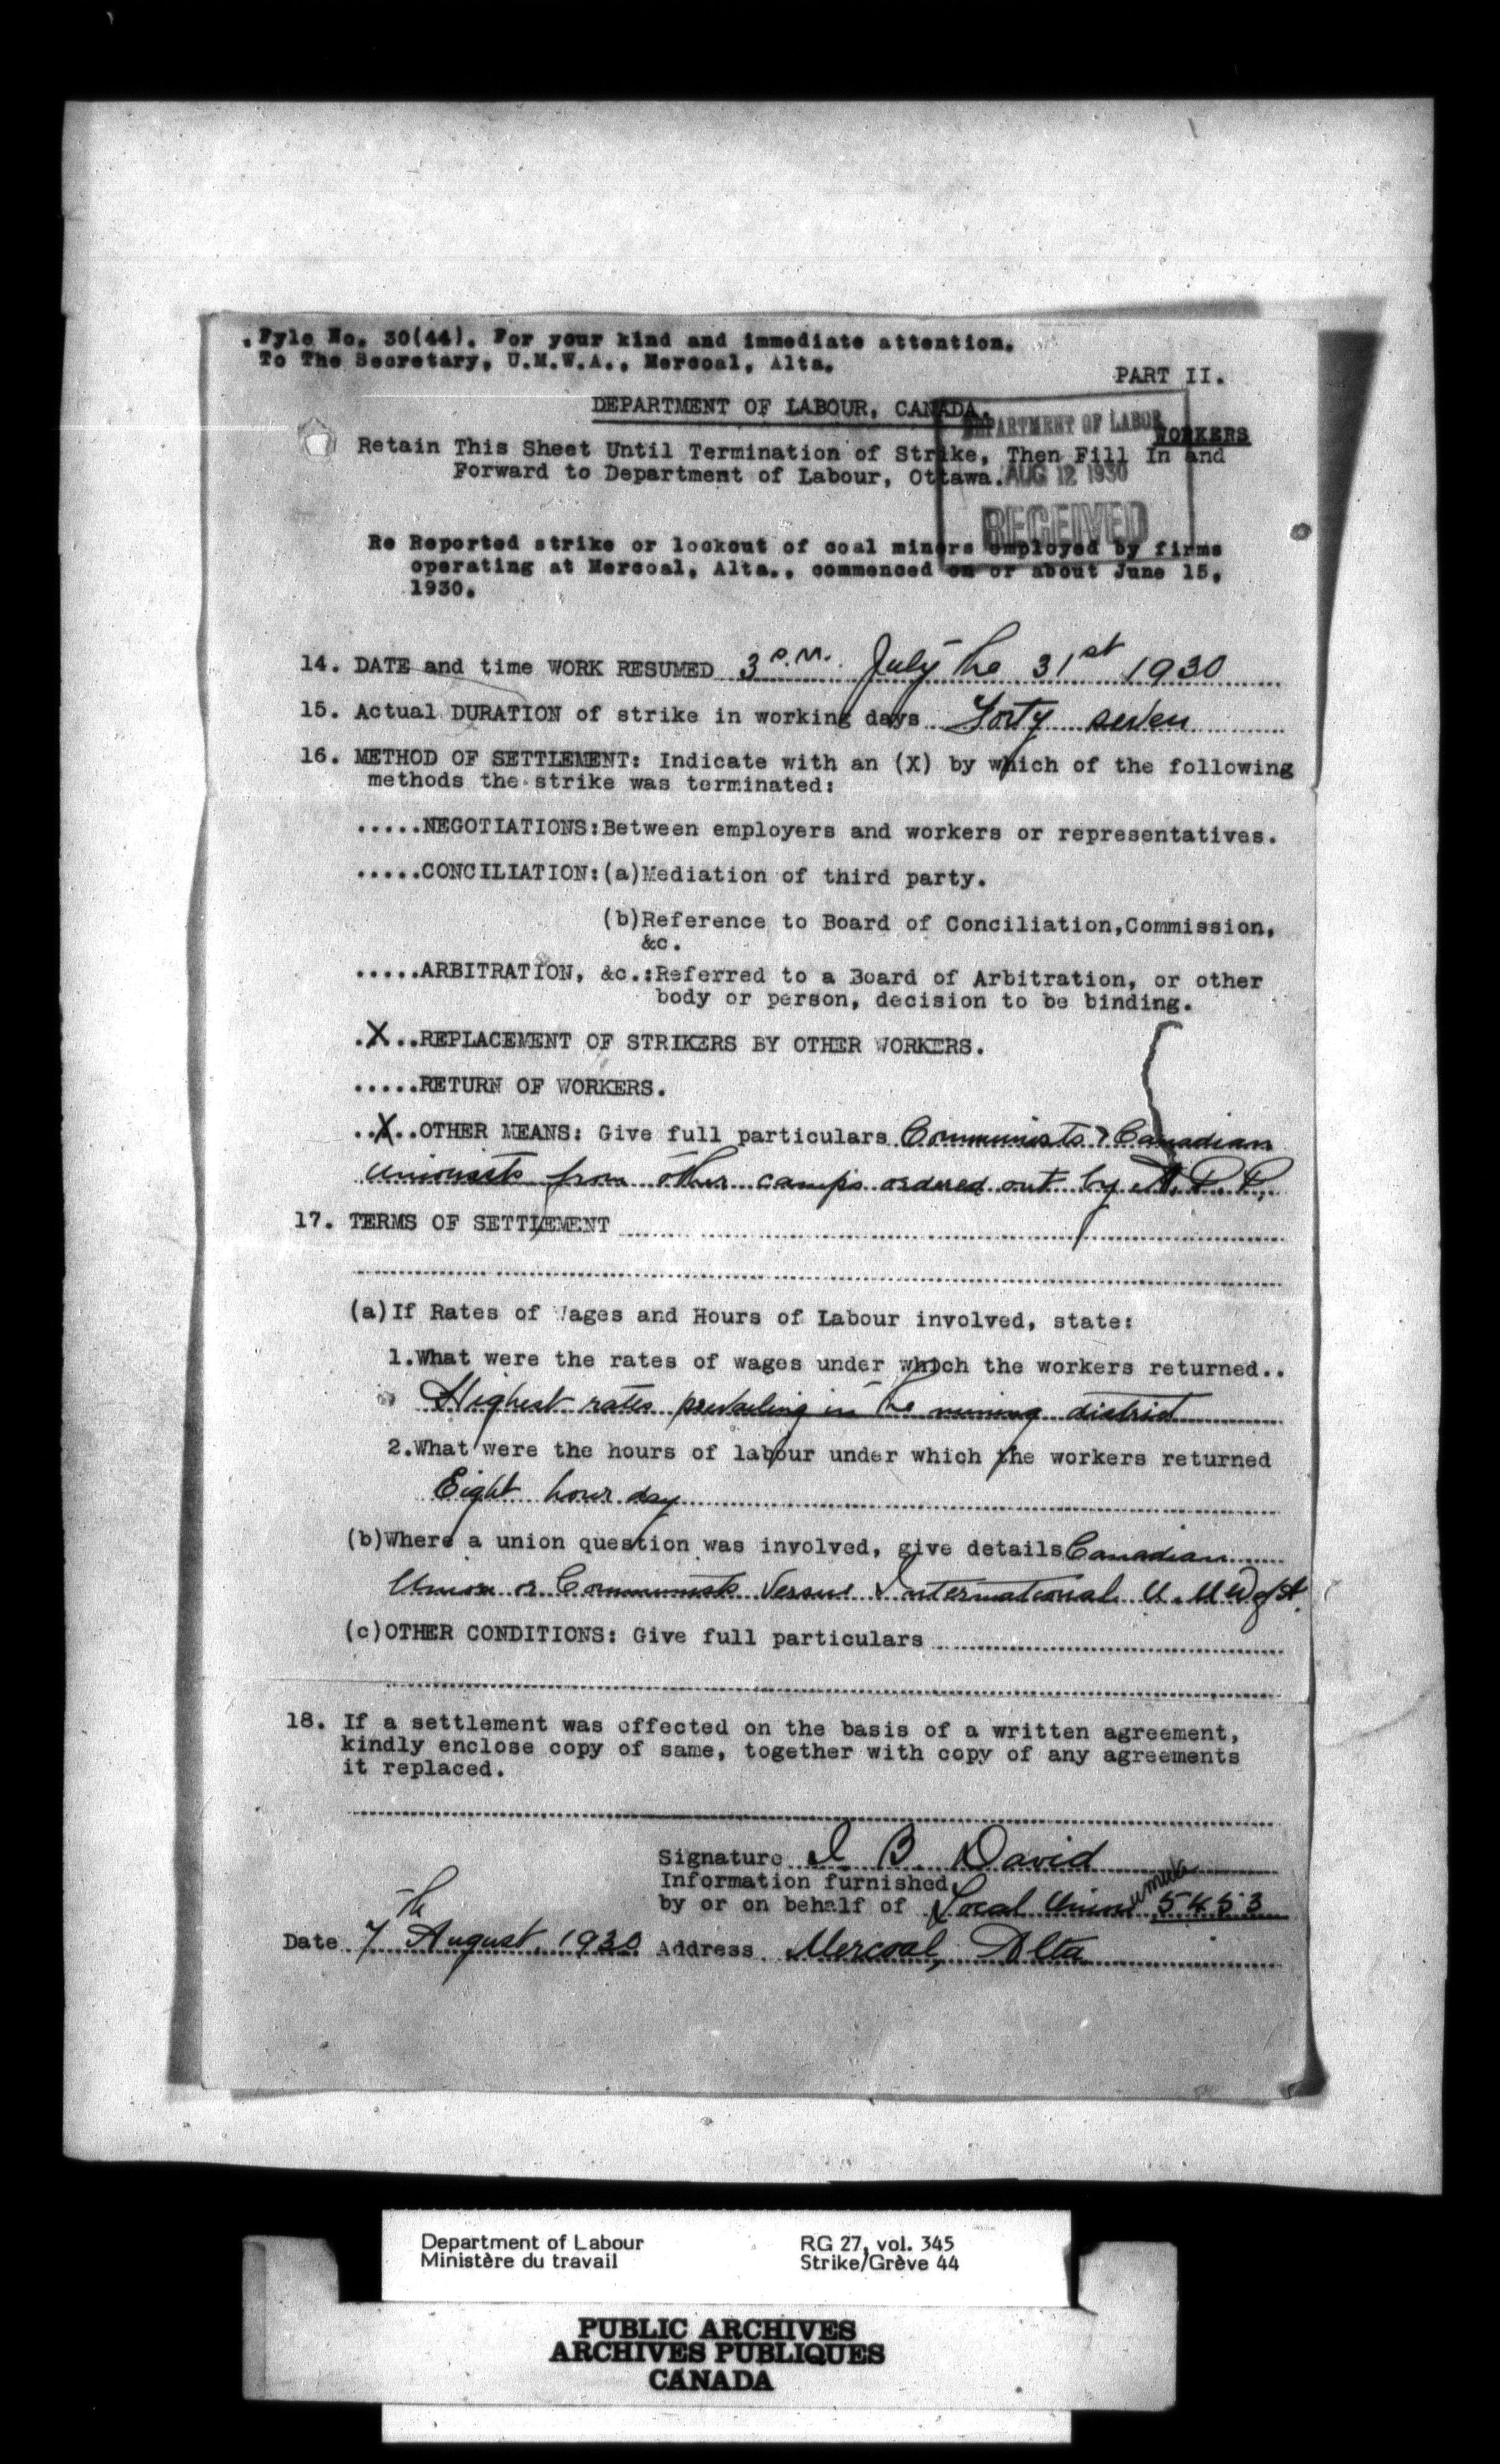 Fyle No. 30(44). For your kind and immediate attention.
To The Secretary, U.M.W.A., Mercoal, Alta.
PART II.
DEPARTMENT OF LABOUR, CANADA.
DEPARTMENT OF LABOR
WORKERS
Retain This Sheet Until Termination of Strike, Then Fill In and
Forward to Department of Labour, Ottawa.
AUG 12 1930
RECEIVED
Re Reported strike or lockout of coal miners employed by firms
operating at Mercoal, Alta., commenced on or about June 15,
1930.
14. DATE and time WORK RESUMED 3 P.M. July the 31st 1930
15. Actual DURATION of strike in working days Forty seven
16. METHOD OF SETTLEMENT: Indicate with an (X) by which of the following
methods the strike was terminated:
.....NEGOTIATIONS:Between employers and workers or representatives.
.....CONCILIATION:(a)Mediation of third party.
(b)Reference to Board of Conciliation,Commission,
&c.
.....ARBITRATION, &c.:Referred to a Board of Arbitration, or other
body or person, decision to be binding.
.X..REPLACEMENT OF STRIKERS BY OTHER WORKERS.
.....RETURN OF WORKERS.
..X..OTHER MEANS: Give full particulars Communists & Canadian
unionists from other camps ordered out by A.P.P.
17. TERMS OF SETTLEMENT
(a)If Rates of Wages and Hours of Labour involved, state:
1.What were the rates of wages under which the workers returned..
Highest rates prevailing in the mining district
2.What were the hours of labour under which the workers returned
Eight hour day
(b)Where a union question was involved, give details Canadian
Union or Communists Versus International U.M.W. of A.
(c)OTHER CONDITIONS: Give full particulars
18. If a settlement was effected on the basis of a written agreement,
kindly enclose copy of same, together with copy of any agreements
it replaced.
Signature I. B. David
Information furnished
by or on behalf of Local Union 5453
Date 7th August, 1930 Address Mercoal, Alta
Department of Labour
Ministère du travail
RG 27, vol. 345
Strike/Grève 44
PUBLIC ARCHIVES
ARCHIVES PUBLIQUES
CANADA